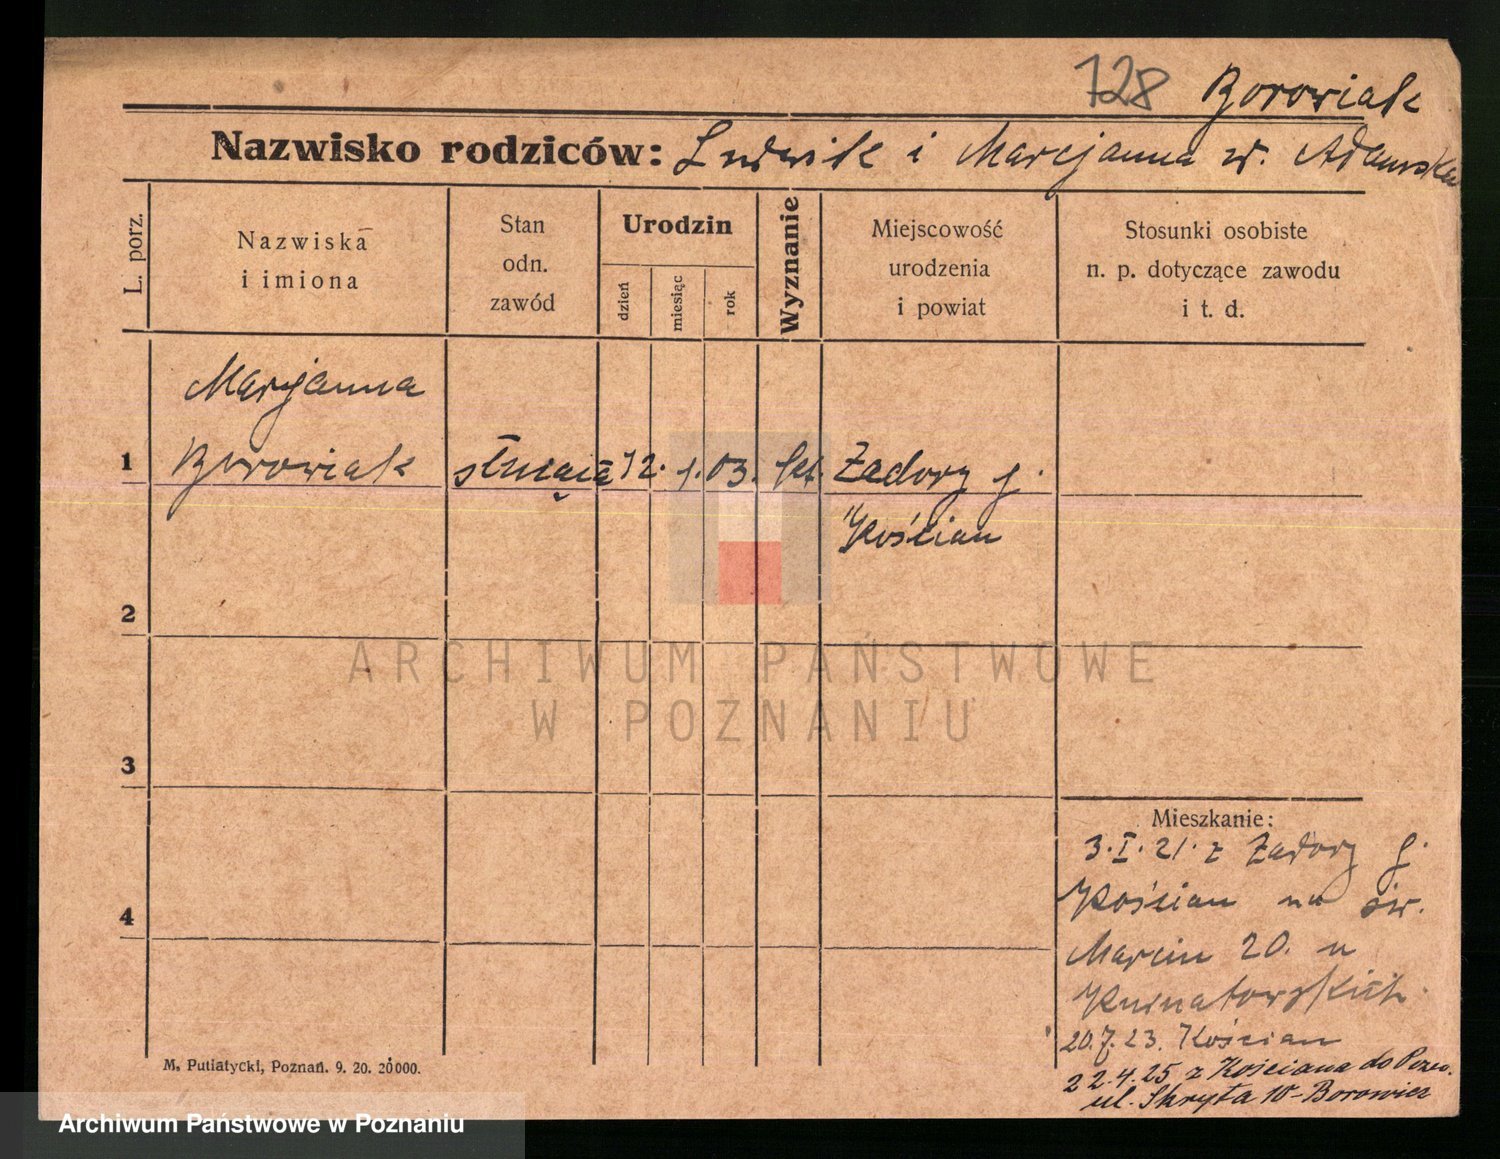 728 Borowiak
Nazwisko rodziców: Ludwik i Marcjanna z d. Adamska
L. porz.
Nazwiska
i imiona
Stan
odn.
zawód
Urodzin
dzień
miesiąc
rok
Wyznanie
Miejscowość
urodzenia
i powiat
Stosunki osobiste
n. p. dotyczące zawodu
i t. d.
Marjanna
1 Borowiak służąca 12. 1. 03. kat. Zadory p.
Kościan
2
ARCHIWUM PAŃSTWOWE
W POZNANIU
3
Mieszkanie:
3. I. 21. z Zadory p.
Kościan na św.
4
Marcin 20. u
Kurnatowskich.
20.7.23. Kościan
22.4.25 z Kościana do Pozn.
ul. Skryta 10 - Borowicz
M. Putiatycki, Poznań. 9. 20. 20000.
Archiwum Państwowe w Poznaniu